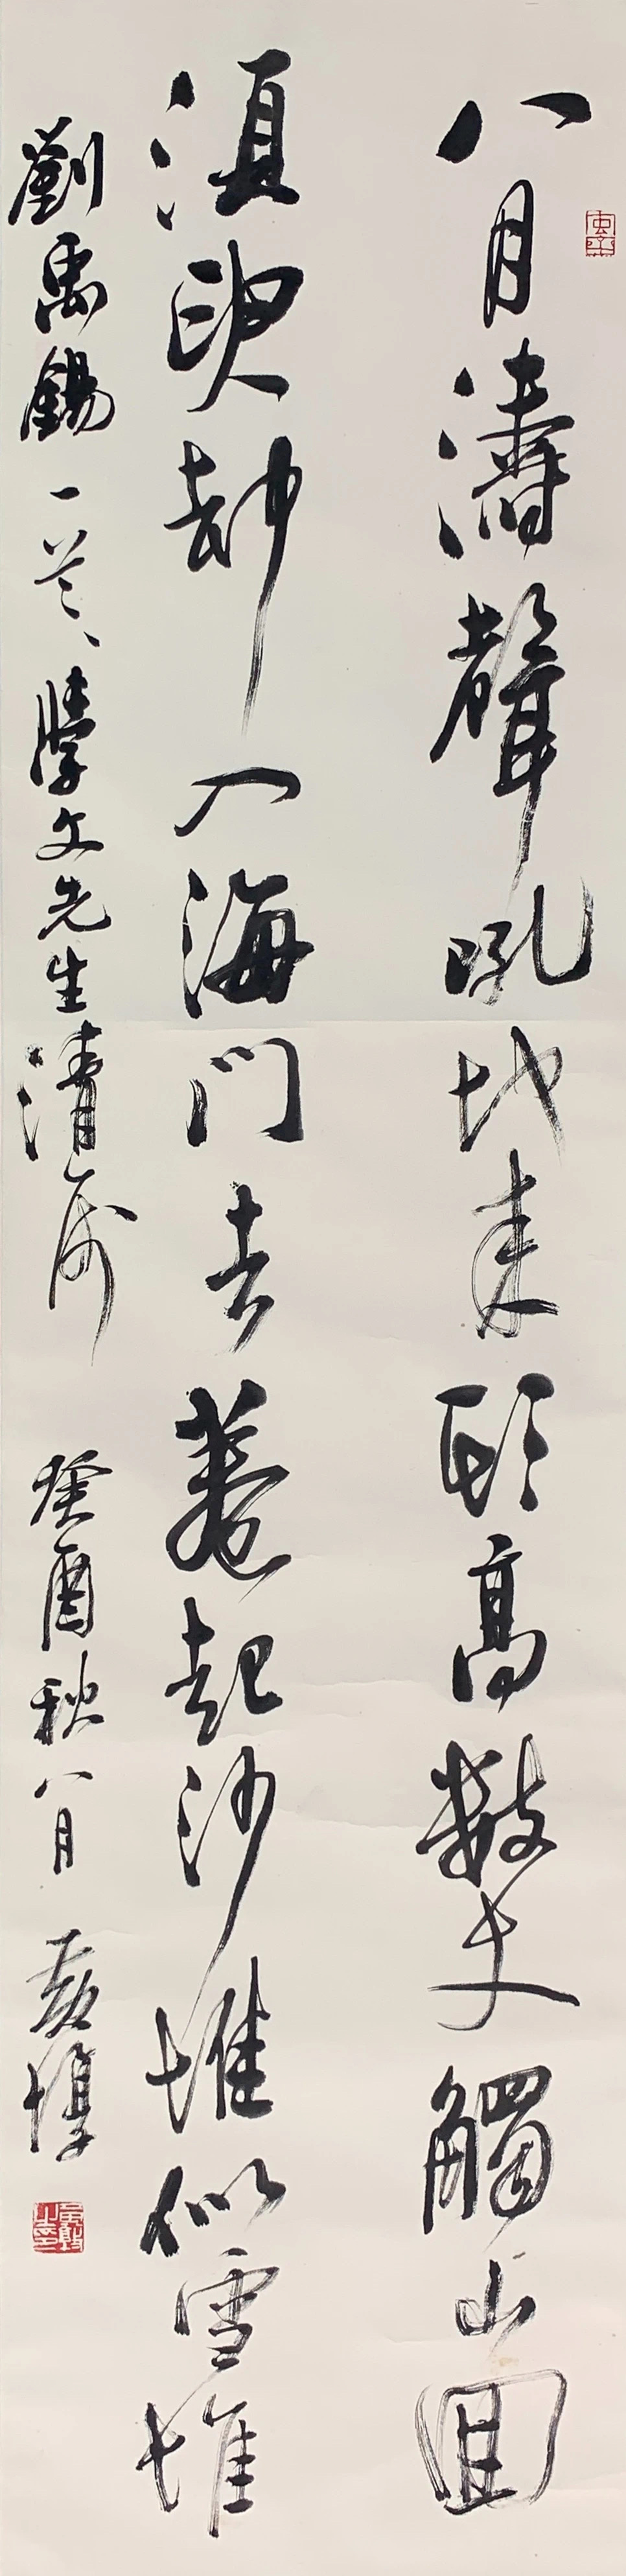 八月濤聲吼地來頭高數丈觸山囬
湏臾却入海門去卷起沙堆似雪堆
劉禹錫一首 文先生清屬 癸酉秋八月 黃惇